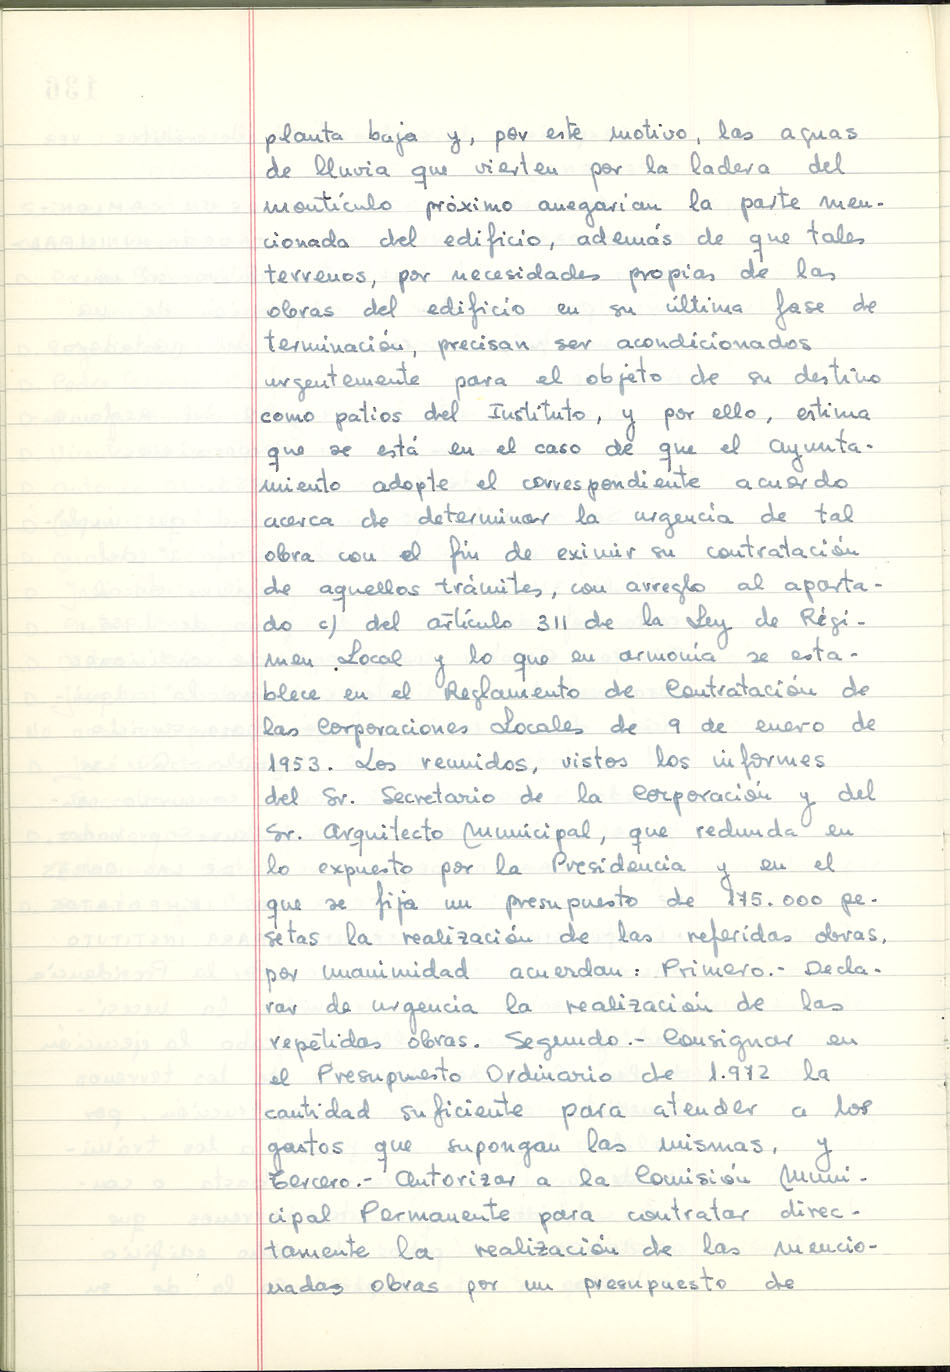 planta baja y, por este motivo, las aguas
de lluvia que vierten por la ladera del
montículo próximo anegarían la parte men-
cionada del edificio, además de que tales
terrenos, por necesidades propias de las
obras del edificio en su última fase de
terminación, precisan ser acondicionados
urgentemente para el objeto de su destino
como patios del Instituto, y por ello, estima
que se está en el caso de que el Ayunta-
miento adopte el correspondiente acuerdo
acerca de determinar la urgencia de tal
obra con el fin de eximir su contratación
de aquellos trámites, con arreglo al aparta-
do c) del artículo 311 de la Ley de Régi-
men Local y lo que en armonía se esta-
blece en el Reglamento de Contratación de
las Corporaciones Locales de 9 de enero de
1953. Los reunidos, vistos los informes
del Sr. Secretario de la Corporación y del
Sr. Arquitecto Municipal, que redunda en
lo expuesto por la Presidencia y en el
que se fija un presupuesto de 175.000 pe-
setas la realización de las referidas obras,
por unanimidad acuerdan: Primero.- Decla-
rar de urgencia la realización de las
repetidas obras. Segundo.- Consignar en
el Presupuesto Ordinario de 1.972 la
cantidad suficiente para atender a los
gastos que supongan las mismas, y
Tercero.- Autorizar a la Comisión Muni-
cipal Permanente para contratar direc-
tamente la realización de las mencio-
nadas obras por un presupuesto de